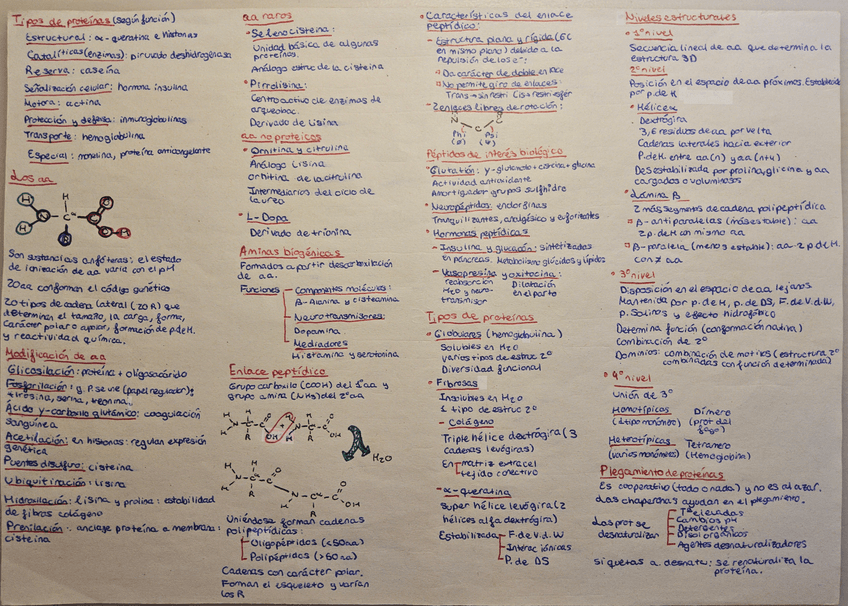 Tipos de proteínas (según función)
Estructural: α-queratina e histonas
Catalíticas (enzimas): piruvado deshidrogenasa
Reserva: caseína
Señalización celular: hormona insulina
Motora: actina
Protección y defensa: inmunoglobulinas
Transporte: hemoglobulina
Especial: monelina, proteína anticongelante
Los aa
H
H
N
H
C
R
C
O
O
H
Son sustancias anfóteras: el estado
de ionización de aa varía con el pH
20 aa conforman el código genético
20 tipos de cadena lateral (20 R) que
determinan el tamaño, la carga, forma,
carácter polar o apolar, formación de p. de H.
y reactividad química.
Modificación de aa
Glicosilación: proteína + oligosacárido
Fosforilación: g. P. se une (papel regulador):
tirosina, serina, treonina...
Ácido γ-carboxi glutámico: coagulación
sanguínea
Acetilación: en histonas: regulan expresión
genética
Puentes disulfuro: cisteína
Ubiquitinación: lisina
Hidroxilación: lisina y prolina: estabilidad
de fibras colágeno
Prenilación: anclaje proteína a membrana:
cisteína
aa raros
Selenocisteína:
Unidad básica de algunas
proteínas.
Análogo estruc de la cisteína
Pirrolisina:
Centro activo de enzimas de
arqueobac.
Derivado de Lisina
aa no proteicos
Ornitina y citrulina
Análogo lisina
ornitina de la citrulina
Intermediarios del ciclo de
la urea
L-Dopa
Derivado de tirionina
Aminas biogénicas
Formados a partir descarboxilación
de aa.
Funciones
Componentes moléculas:
β-Alanina y cisteamina
Neurotransmisores:
Dopamina
Mediadores
Histamina y serotonina
Enlace peptídico
Grupo carboxilo (COOH) del 1º aa y
grupo amina (NH2) del 2º aa
H2O
Uniéndose forman cadenas
polipeptídicas:
Oligopéptidos (<50aa)
Polipéptidos (>60aa)
Cadenas con carácter polar.
Forman el esqueleto y varían
los R
Características del enlace
peptídico:
Estructura plana y rígida (6C
en mismo plano) debido a la
repulsión de los e-:
Da carácter de doble enlace
No permite giro de enlaces:
Trans → sin estri Cis → restri esfér
2 enlaces libres de rotación:
N C C
Phi Psi
(φ) (ψ)
Péptidos de interés biológico
Glutatión: γ-glutamato + cisteína + glicina
Actividad antioxidante
Amortiguador grupos sulfhidro
Neuropéptidos: endorfinas
Tranquilizantes, analgésico y euforizantes
Hormonas peptídicas
Insulina y glucagón: sintetizadas
en páncreas. Metabolismo glúcidos y lípidos
Vasopresina y oxitocina:
reabsorción Dilatación
H2O y neuro- en el parto
transmisor
Tipos de proteínas
Globulares (hemoglobulina)
Solubles en H2O
Varios tipos de estruc 2º
Diversidad funcional
Fibrosas
Insolubles en H2O
1 tipo de estruc 2º
Colágeno
Triple hélice dextrógira (3
cadenas levógiras)
En matriz extracel
tejido conectivo
α-queratina
Super hélice levógira (2
hélices alfa dextrógira)
Estabilizada
F. de V. d. W
Interac iónicas
P. de DS
Niveles estructurales
1º nivel
Secuencia lineal de aa que determina la
estructura 3D
2º nivel
Posición en el espacio de aa próximos. Establecida
por p. de H.
Hélice α
Dextrógira
3,6 residuos de aa por vuelta
Cadenas laterales hacia exterior
P. de H. entre aa(n) y aa(n+4)
Desestabilizada por prolina, glicina y aa
cargados o voluminosos
Lámina β
2 más segments de cadena polipeptídica
β-antiparalelas (más estable): aa
2 p. de H con mismo aa
β-paralela (menos estable): aa-2 p. de H.
con ≠ aa
3º nivel
Disposición en el espacio de aa lejanos
Mantenida por p. de H, p. de DS, F. de V. d. W,
p. Salinos y efecto hidrofóbico
Determina función (conformación nativa)
Combinación de 2º
Dominios: combinación de motivos (estructura 2º
combinadas con función determinada)
4º nivel
Unión de 3º
Homotípicas Dímero
(1 tipo monómero) (prot del
fago)
Heterotípicas Tetramero
(varios monómeros) (Hemoglobin)
Plegamiento de proteínas
Es cooperativo (todo o nada) y no es al azar.
Las chaperonas ayudan en el plegamiento.
Las prot se
desnaturalizan
Tª elevadas
Cambios pH
Detergentes
Disol orgánicos
Agentes desnaturalizadores
si quetas a desnatu: se renaturaliza la
proteína.